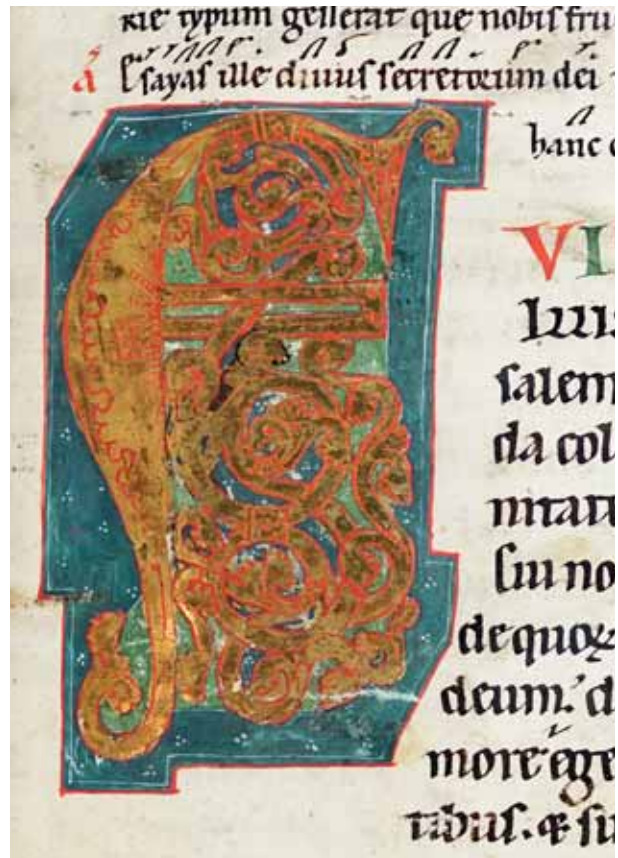 rie typum gesserat que nobis fru
a Esayas ille diuus secretorum dei
hanc c
VI
salem
da col
nitate
sui no
de quoꝝ
deum. d
more ege
tibus. & su